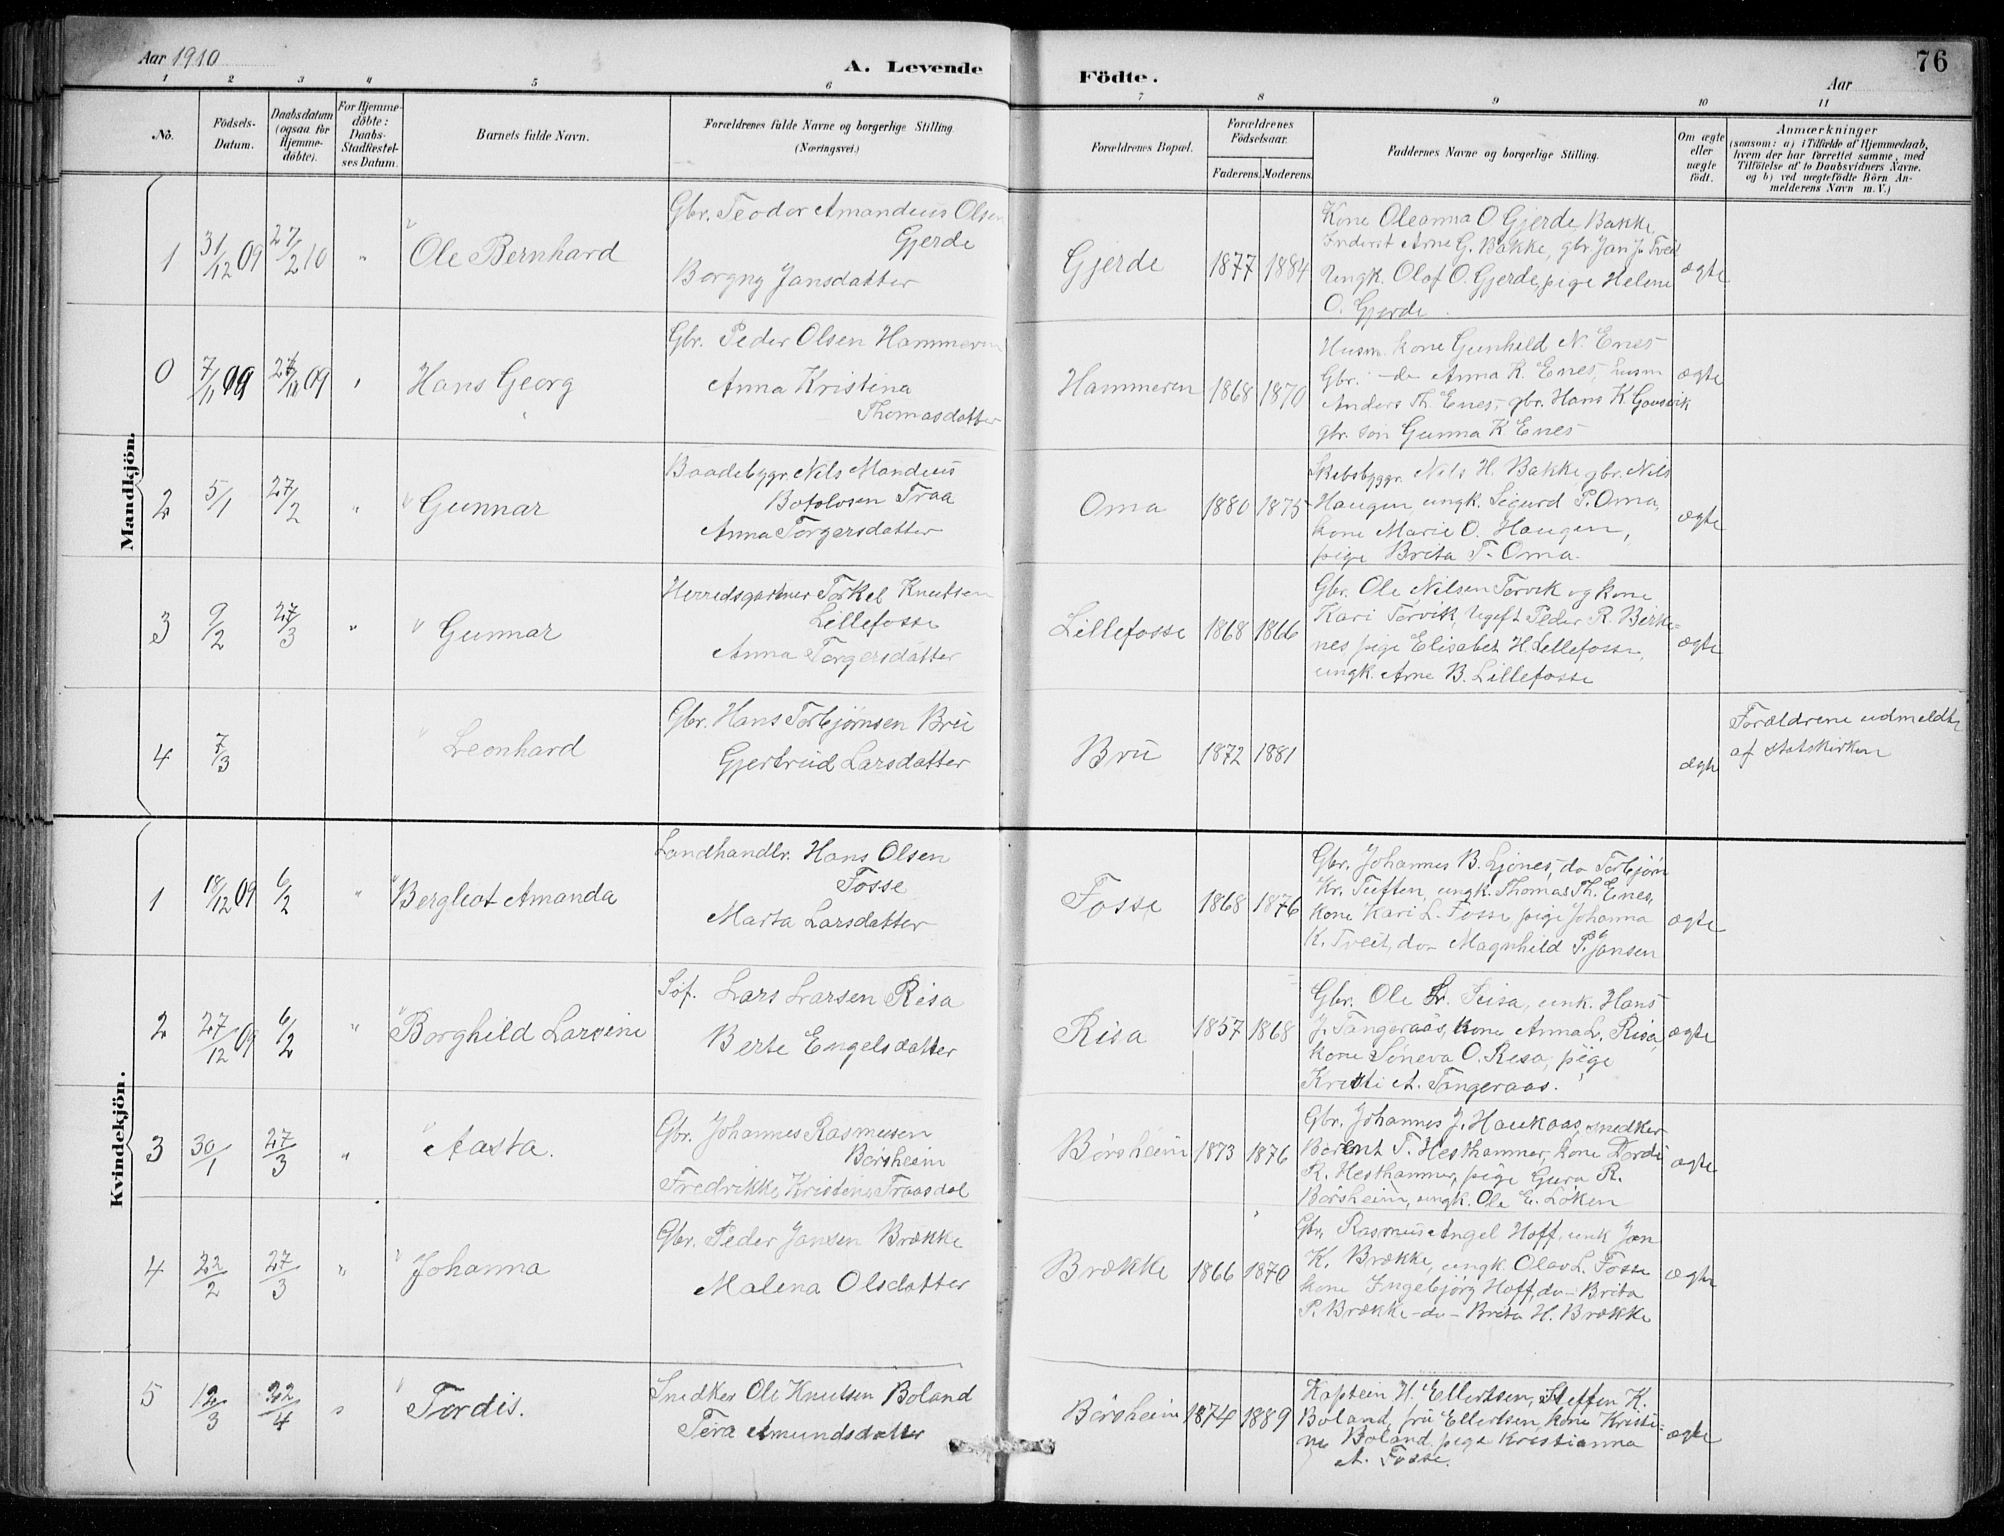 Aar 1910
A. Levende
Födte.
Aar
76
1 2 3 4 5 6 7 8 9 10 11
No.
Födsels-
Datum.
Daabsdatum
(ogsaa for
Hjemme-
döbte).
For Hjemme-
döbte:
Daabs-
Stadfæstel-
ses Datum.
Barnets fulde Navn.
Forældrenes fulde Navne og borgerlige Stilling.
(Næringsvei.)
Forældrenes Bopæl.
Forældrenes
Födselsaar.
Faderens.
Moderens.
Faddernes Navne og borgerlige Stilling.
Om ægte
eller
uægte
födt.
Anmærkninger
(saasom: a) i Tilfælde af Hjemmedaab,
hvem der har forrettet samme, med
Tilföielse af to Daabsvidners Navne,
og b) ved uægtefödte Börn An-
melderens Navn m. V.)
Mandkjön.
1 31/12 09 27/2 10 " Ole Bernhard
Gbr. Teodor Amandus Olsen
Gjerde
Borgny Jansdatter
Gjerde 1877 1884
Kone Oleanna O. Gjerde, Bakke
Inderst Arne G. Bakke, gbr. Jan J. Tveit
Ungk. Olaf O. Gjerde, pige Helene
O. Gjerde
ægte
0 7/11 09 27/11 09 " Hans Georg
Gbr. Peder Olsen Hammeren
Anna Kristina
Thomasdatter
Hammeren 1868 1870
Husm. kone Gunhild N. Enes
Gbr. - do Anna K. Enes, husm
Anders Th. Enes, gbr. Hans K. Gausvik
gbr. søn Gunna K. Enes
ægte
2 5/1 27/2 " Gunnar
Baadebyggr. Nils Mandius
Botolvsen Traa
Anna Torgersdatter
Oma 1880 1875
Skibsbyggr. Nils H. Bakke gbr. Nils
Haugen, ungk. Sigurd P. Oma,
kone Marie O. Haugen,
pige Brita T. Oma.
ægte
3 9/2 27/3 " Gunnar
Herredsgartner Torkel Knutsen
Lillefosse
Anna Torgersdatter
Lillefosse 1868 1866
Gbr. Ole Nilsen Torvik og kone
Kari Torvik, Ugift Peder R. Birke-
nes pige Elisabet H. Lillefosse,
ungk. Arne B. Lillefosse
ægte
4 7/3 " Leonhard
Gbr. Hans Torbjørnsen Bru
Gjertrud Larsdatter
Bru 1872 1881
ægte
Forældrene udmeldt
af statskirken
Kvindekjön.
1 18/12 09 6/2 " Bergliot Amanda
Landhandlr. Hans Olsen
Fosse
Marta Larsdatter
Fosse 1868 1876
Gbr. Johannes B. Ljones, do Torbjørn
Kr. Tuften, ungk. Thomas Th. Enes,
kone Kari L. Fosse, pige Johanna
K. Tveit, do- Magnhild P. Jansen
ægte
2 27/12 09 6/2 " Borghild Larsine
Søf. Lars Larsen Risa
Berte Engelsdatter
Risa 1857 1868
Gbr. Ole Risa, unk. Hans
J. Tangeraas, kone Anna L. Risa,
kone Søneva O. Risa, pige
Kristi A. Tangeraas.
ægte
3 30/1 27/3 " Aasta.
Gbr. Johannes Rasmusen
Børsheim
Fredrikke Kristine Traasdal
Børsheim 1873 1876
Gbr. Johannes J. Haukaas, snedker
Berent T. Hesthammer, kone Dordi
R. Hesthammer, pige Guro R.
Børsheim, ungk. Ole E. Løken
ægte
4 22/2 27/3 " Johanna
Gbr. Peder Jansen Brække
Malena Olsdatter
Brække 1866 1870
Gbr. Rasmus Angel Hoff, unk Jan
K. Brække, ungk. Olav L. Fosse
kone Ingebjørg Hoff, do- Brita
P. Brække -do- Brita H. Brække
ægte
5 12/3 22/4 " Tordis.
Snedker Ole Knutsen Boland
Tera Amundsdatter
Børsheim 1874 1889
Kaptein H. Ellertsen, Steffen K.
Boland, fru Ellertsen, kone Kristi-
ne Boland, pige Kristianna
A. Fosse.
ægte